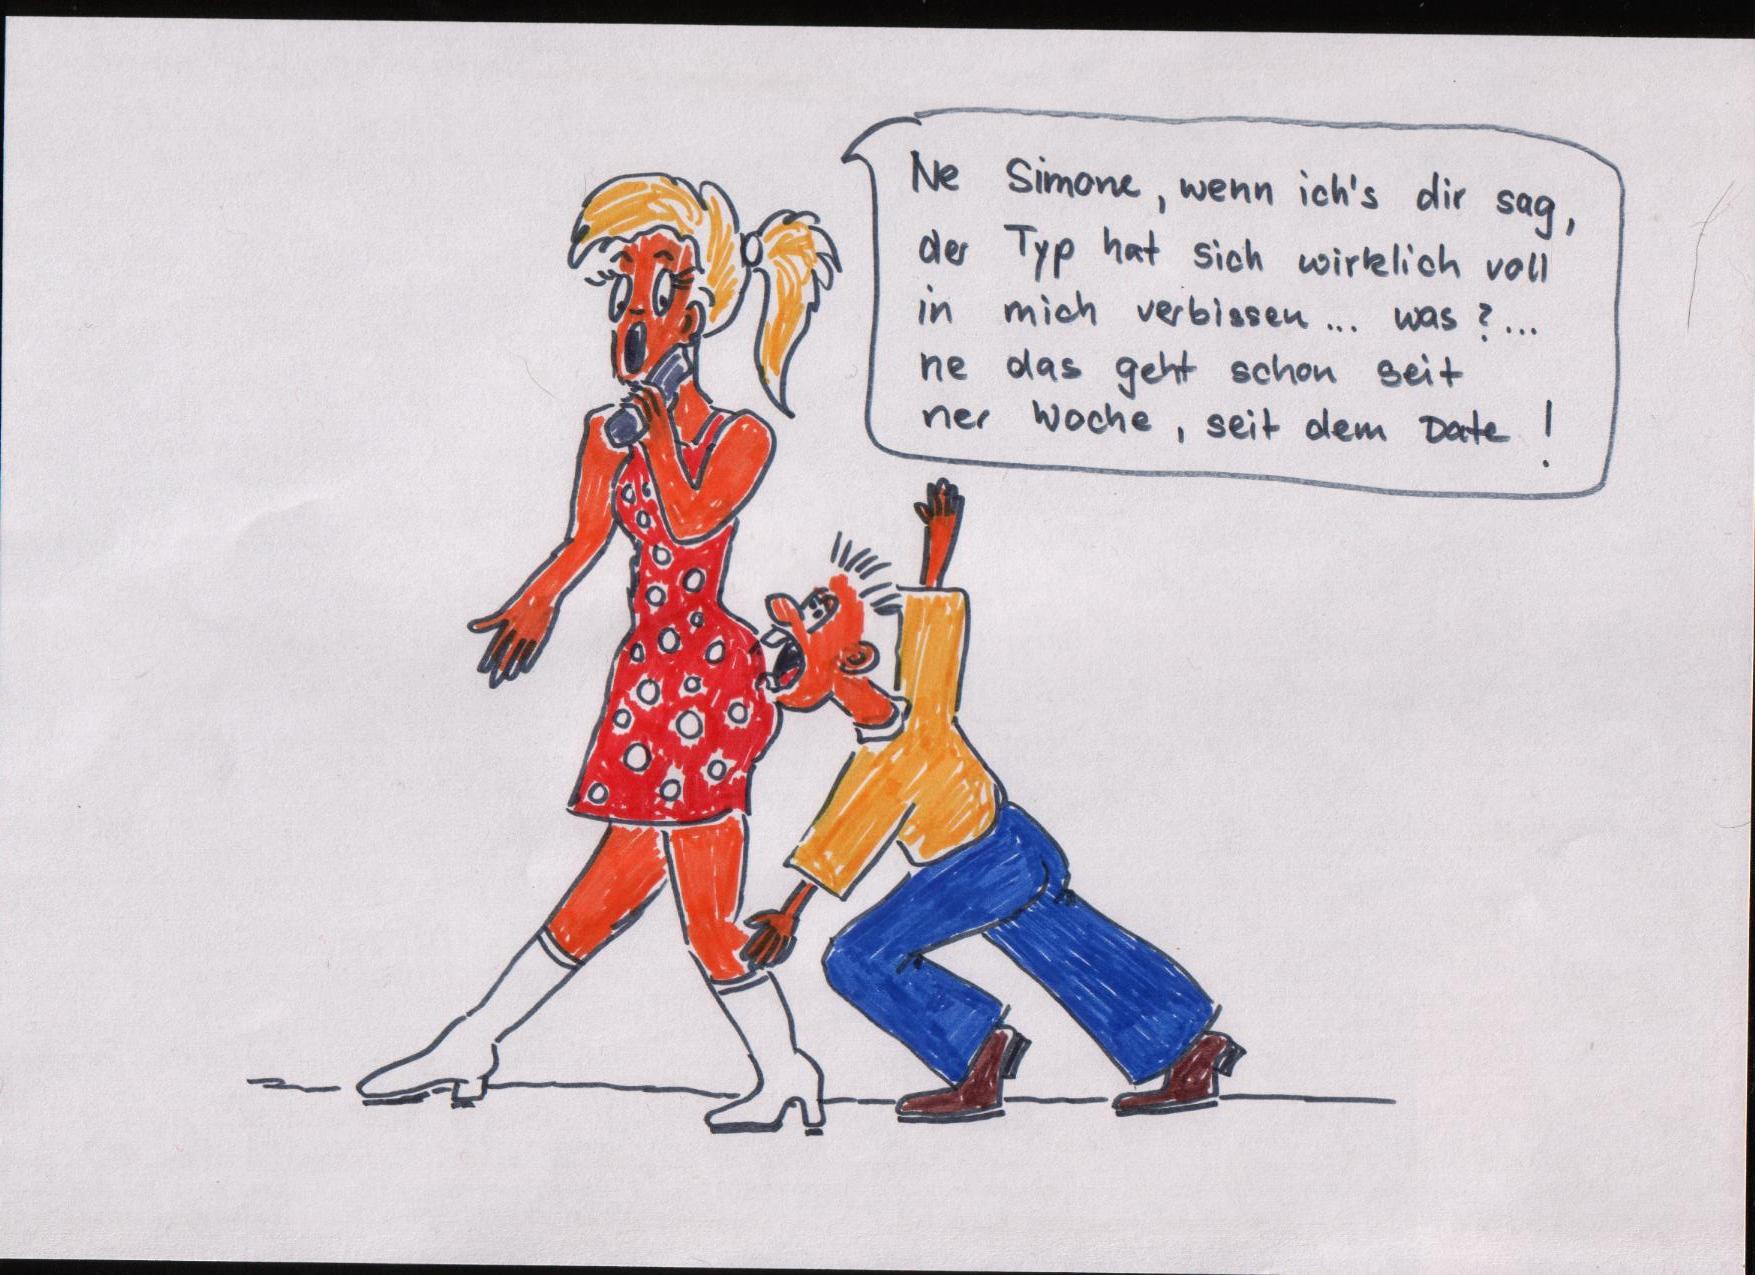 Ne Simone, wenn ich's dir sag,
der Typ hat sich wirklich voll
in mich verbissen... was?...
ne das geht schon seit
ner Woche, seit dem Date!